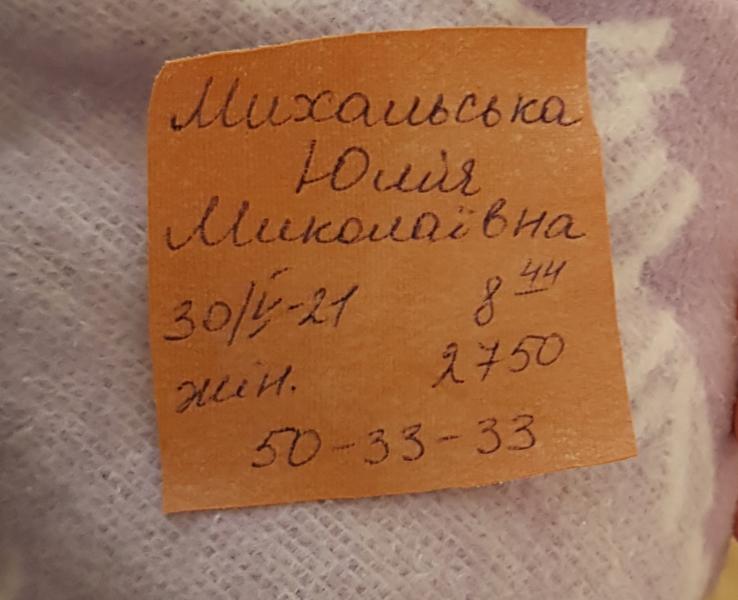 Михальська
Юлія
Миколаївна
30/V-21 8 44
жін. 2750
50-33-33